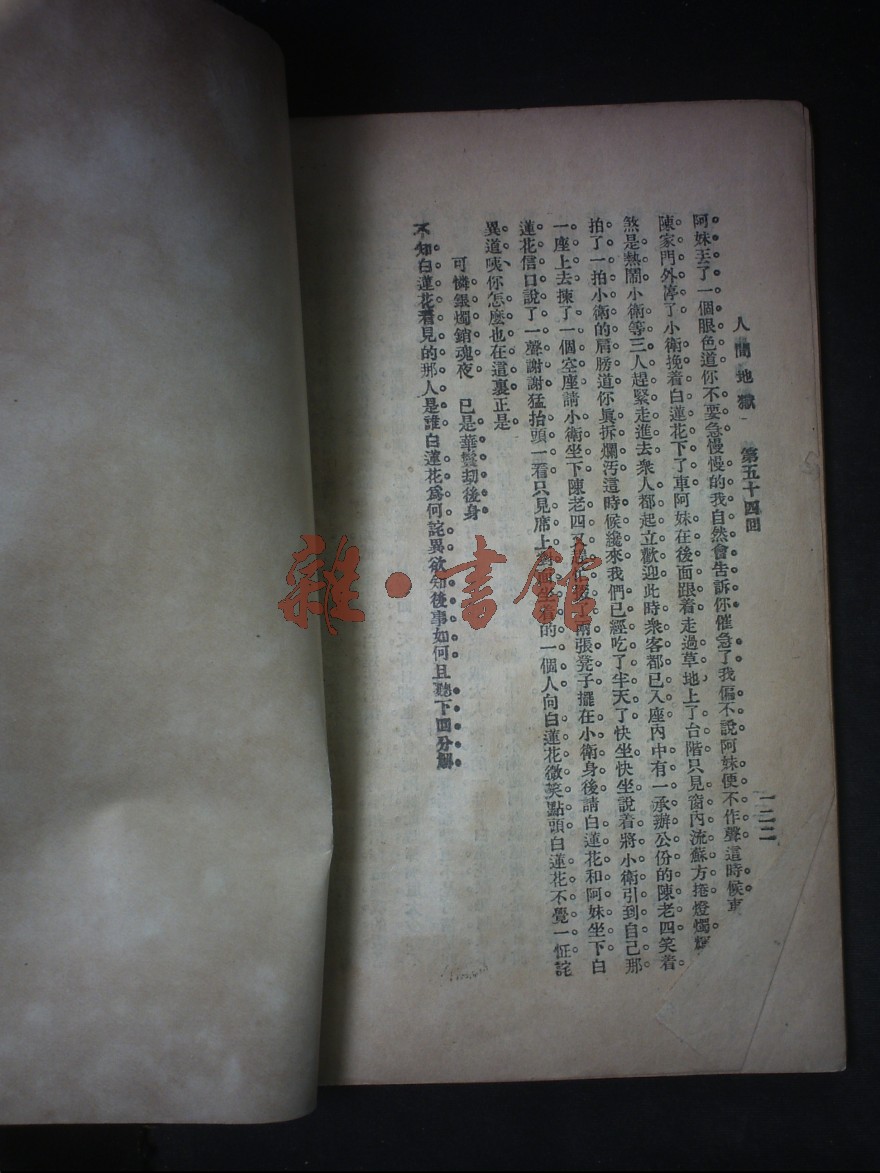 人間地獄 第五十四回 一二二
阿妹丟了一個眼色道你不要急慢慢的我自然會告訴你催急了我偏不說阿妹便不作聲這時候車
陳家門外停了小衛挽着白蓮花下了車阿妹在後面跟着走過草地上了台階只見窗內流蘇方捲燈燭輝
煞是熱鬧小衛等三人趕緊走進去衆人都起立歡迎此時衆客都已入座內中有一承辦公份的陳老四笑着
拍了一拍小衛的肩膀道你眞拆爛汚這時候纔來我們已經吃了半天了快坐快坐說着將小衛引到自己那
一座上去揀了一個空座請小衛坐下陳老四又 兩張凳子擺在小衛身後請白蓮花和阿妹坐下白
蓮花信口說了一聲謝謝猛抬頭一看只見席上 的一個人向白蓮花微笑點頭白蓮花不覺一怔詫
異道咦你怎麼也在這裏正是
可憐銀燭銷魂夜 已是華鬘劫後身
不知白蓮花看見的那人是誰白蓮花爲何詫異欲知後事如何且聽下回分解
雜·書館